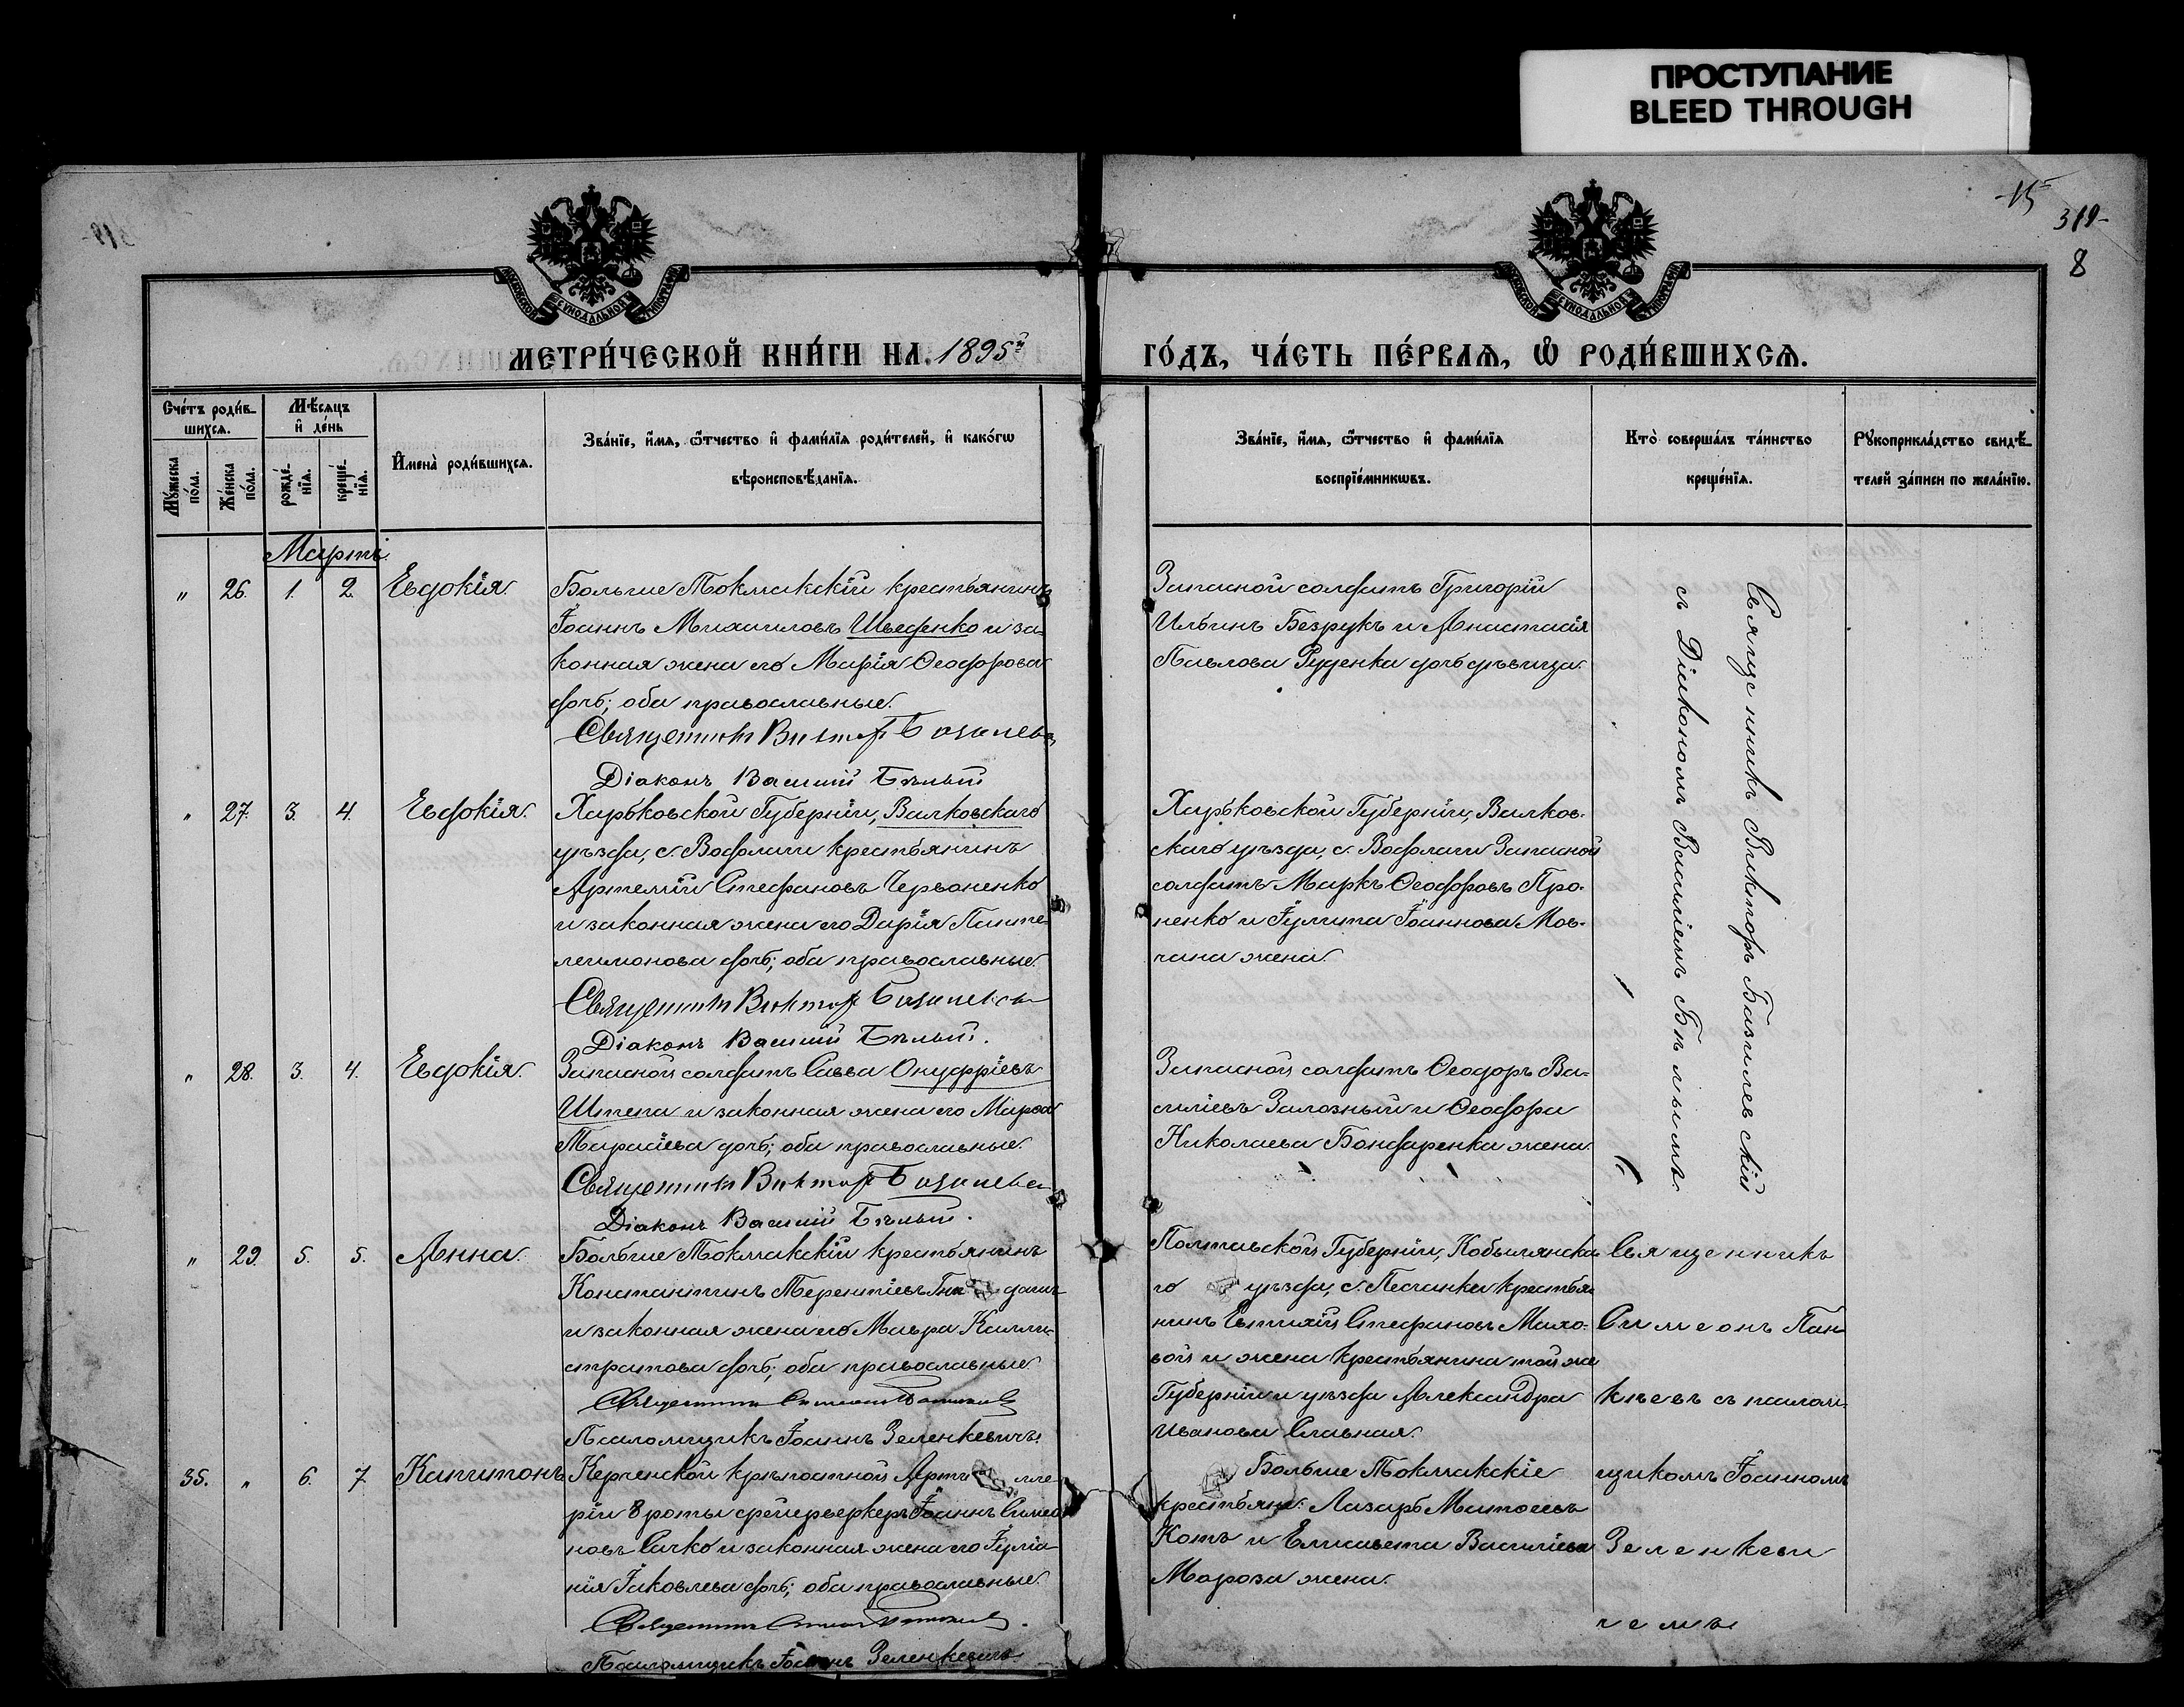 ПРОСТУПАНИЕ
BLEED THROUGH
15
319
8
МЕТРИ́ЧЕСКОЙ КНИ́ГИ НА 1895й
ГО́ДЪ, ЧА́СТЬ ПЕ́РВАѦ, Ѽ РОДИ́ВШИХСѦ.
Сче́тъ роди́в-
шихсѧ.
Мꙋ́жеска по́ла.
Же́нска по́ла.
Мѣ́сѧцъ
и҆ де́нь
рожде́-
нїѧ.
креще́-
нїѧ.
И҆мена̀ роди́вшихсѧ.
Зва́нїе, и҆́мѧ, ѻ҆́тчество и҆ фами́лїѧ роди́телей, и҆ како́гѡ
вѣроисповѣ́данїѧ.
Зва́нїе, и҆́мѧ, ѻ҆́тчество и҆ фами́лїѧ
воспрїе́мникѡвъ.
Кто̀ соверша́лъ та́инство
креще́нїѧ.
Рꙋкоприкла́дство свидѣ́-
телей за́писи по жела́нїю.
Мартъ.
" 26. 1. 2. Евдокія.
Больше Токмакскій крестьянинъ
Іоаннъ Михаиловъ Шведенко и за-
конная жена его Марія Ѳеодорова
дочь; оба православные.
Священникъ Виктор Базилевск
Діаконъ Василій Бѣлый
Запасной солдатъ Григорій
Ильинъ Безрукъ и Анастасія
Павлова Руденка дочь дѣвица.
Священникъ Викторъ Базилевскій
съ Діакономъ Василіемъ Бѣлымъ.
" 27. 3. 4. Евдокія.
Харьковской Губерніи, Валковскаго
уѣзда, с. Водолаги крестьянинъ
Артемій Стефановъ Червоненко
и законная жена его Дарія Панте-
леимонова дочь; оба православные.
Священникъ Виктор Базилевск
Діаконъ Василій Бѣлый.
Харьковской Губерніи, Валков-
скаго уѣзда, с. Водолаги Запасной
солдатъ Маркъ Ѳеодоровъ Про-
ненко и Іулита Іоаннова Мов-
чана жена.
" 28. 3. 4. Евдокія.
Запасной солдатъ Савва Онуфріевъ
Штепа и законная жена его Марѳа
Тарасіева дочь; оба православные.
Священникъ Виктор Базилевск
Діаконъ Василій Бѣлый.
Запасной солдатъ Ѳеодоръ Ва-
силіевъ Залозный и Ѳеодора
Николаева Бондаренка жена.
" 29. 5. 5. Анна.
Больше Токмакскій крестьянинъ
Константинъ Терентіевъ
и законная жена его Мавра Калли-
стратова дочь; оба православные
Священникъ Симеонъ Паньковъ
Псаломщикъ Іоаннъ Зеленкевичъ.
Полтавской Губерніи, Кобылянска-
го уѣзда, с. Песчанки крестья-
нинъ Евтихій Стефановъ Махо-
вой и жена крестьянина той же
Губерніи и уѣзда Александра
Иванова Славная.
Священникъ
Симеонъ Пан-
ьковъ съ псалом-
щикомъ Іоанномъ
Зеленкеви-
чемъ.
35. " 6. 7. Капитонъ
Керченской крѣпостной Артилле-
ріи 8 роты фейерверкеръ Іоаннъ Симео-
новъ Сачко и законная жена его Іуліа-
нія Іаковлева дочь; оба православные.
Священникъ Симеонъ Паньковъ.
Псаломщикъ Іоаннъ Зеленкевичъ.
Больше Токмакскіе
крестьян: Лазарь Матѳіевъ
Котъ и Елисавета Василіева
Мороза жена.